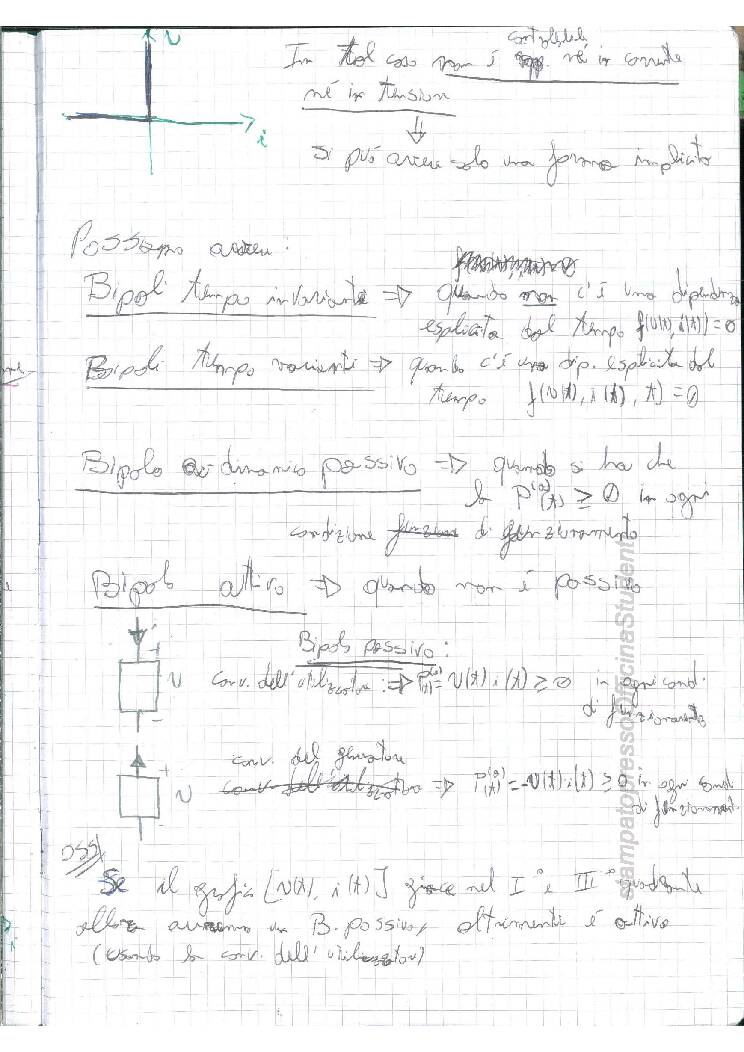 v
i
In tal caso non è controllabile né in corrente
né in tensione
⇓
Si può avere solo una forma implicita
Possiamo avere:
Bipoli tempo invariante ⇒ quando non c'è una dipendenza
esplicita dal tempo f(v(t), i(t)) = 0
Bipoli tempo varianti ⇒ quando c'è una dip. esplicita dal
tempo f(v(t), i(t), t) = 0
Bipolo adinamico passivo ⇒ quando si ha che
la P^(a)(t) ≥ 0 in ogni
condizione di funzionamento
Bipolo attivo ⇒ quando non è passivo
Bipolo passivo:
i + v -
conv. dell'utilizzatore: ⇒ P^(a)(t) = v(t) i(t) ≥ 0 in ogni cond.
di funzionamento
+ v -
conv. del generatore
conv. dell'utilizzatore ⇒ P^(a)(t) = -v(t) i(t) ≥ 0 in ogni cond
di funzionament.
OSS
Se il grafico [v(t), i(t)] giace nel I° e III° quadrante
allora avremo un B. passivo, altrimenti è attivo
(usando la conv. dell'utilizzatore)
stampatopressoOfficinaStudenti